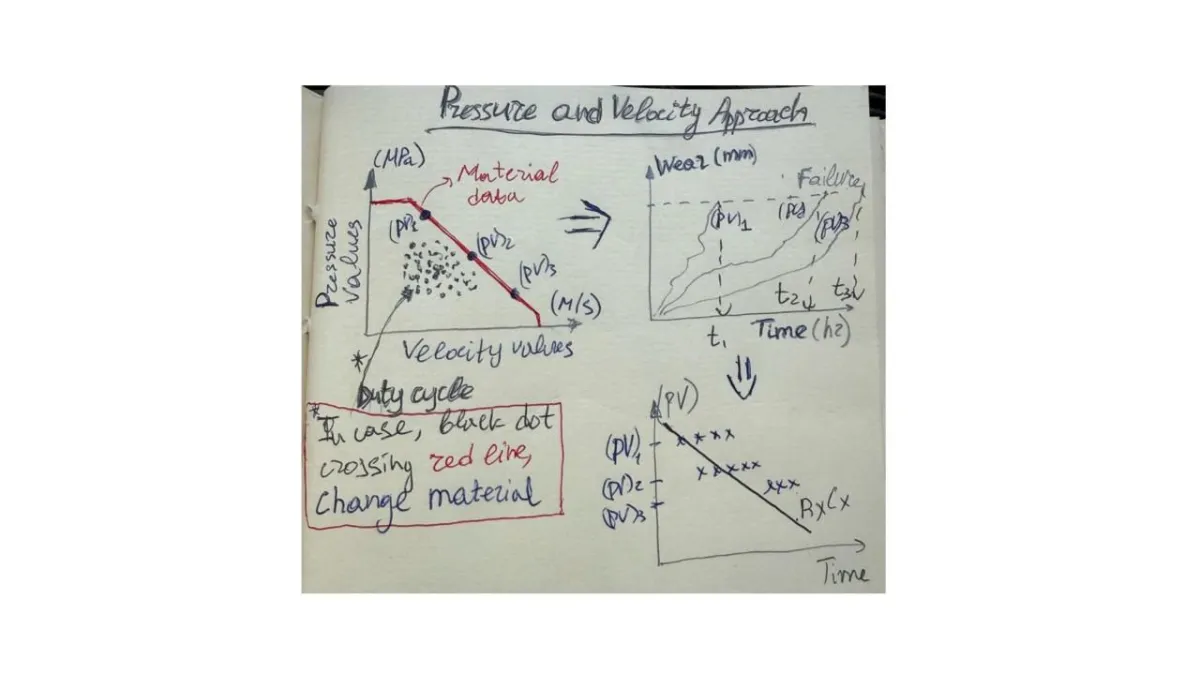 Pressure and Velocity Approach
(MPa)
Material
data
Pressure
Values
(PV)1
(PV)2
(PV)3
(M/S)
Velocity values
*
Duty cycle
* In case, black dot
crossing red line,
Change material
Wear (mm)
Failure
(PV)1
(PV)3
t1
t2
t3
Time (hr)
(PV)
(PV)1
(PV)2
(PV)3
RxCx
Time